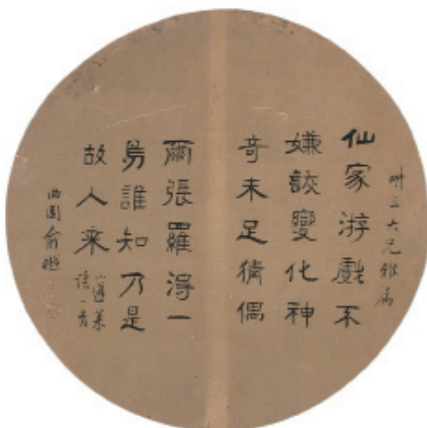 大兄雅屬
仙家游戲不
嫌詼變化神
奇未足猜偶
爾張羅得一
舄誰知乃是
故人來
小蓬萊
謠一首
曲園俞樾